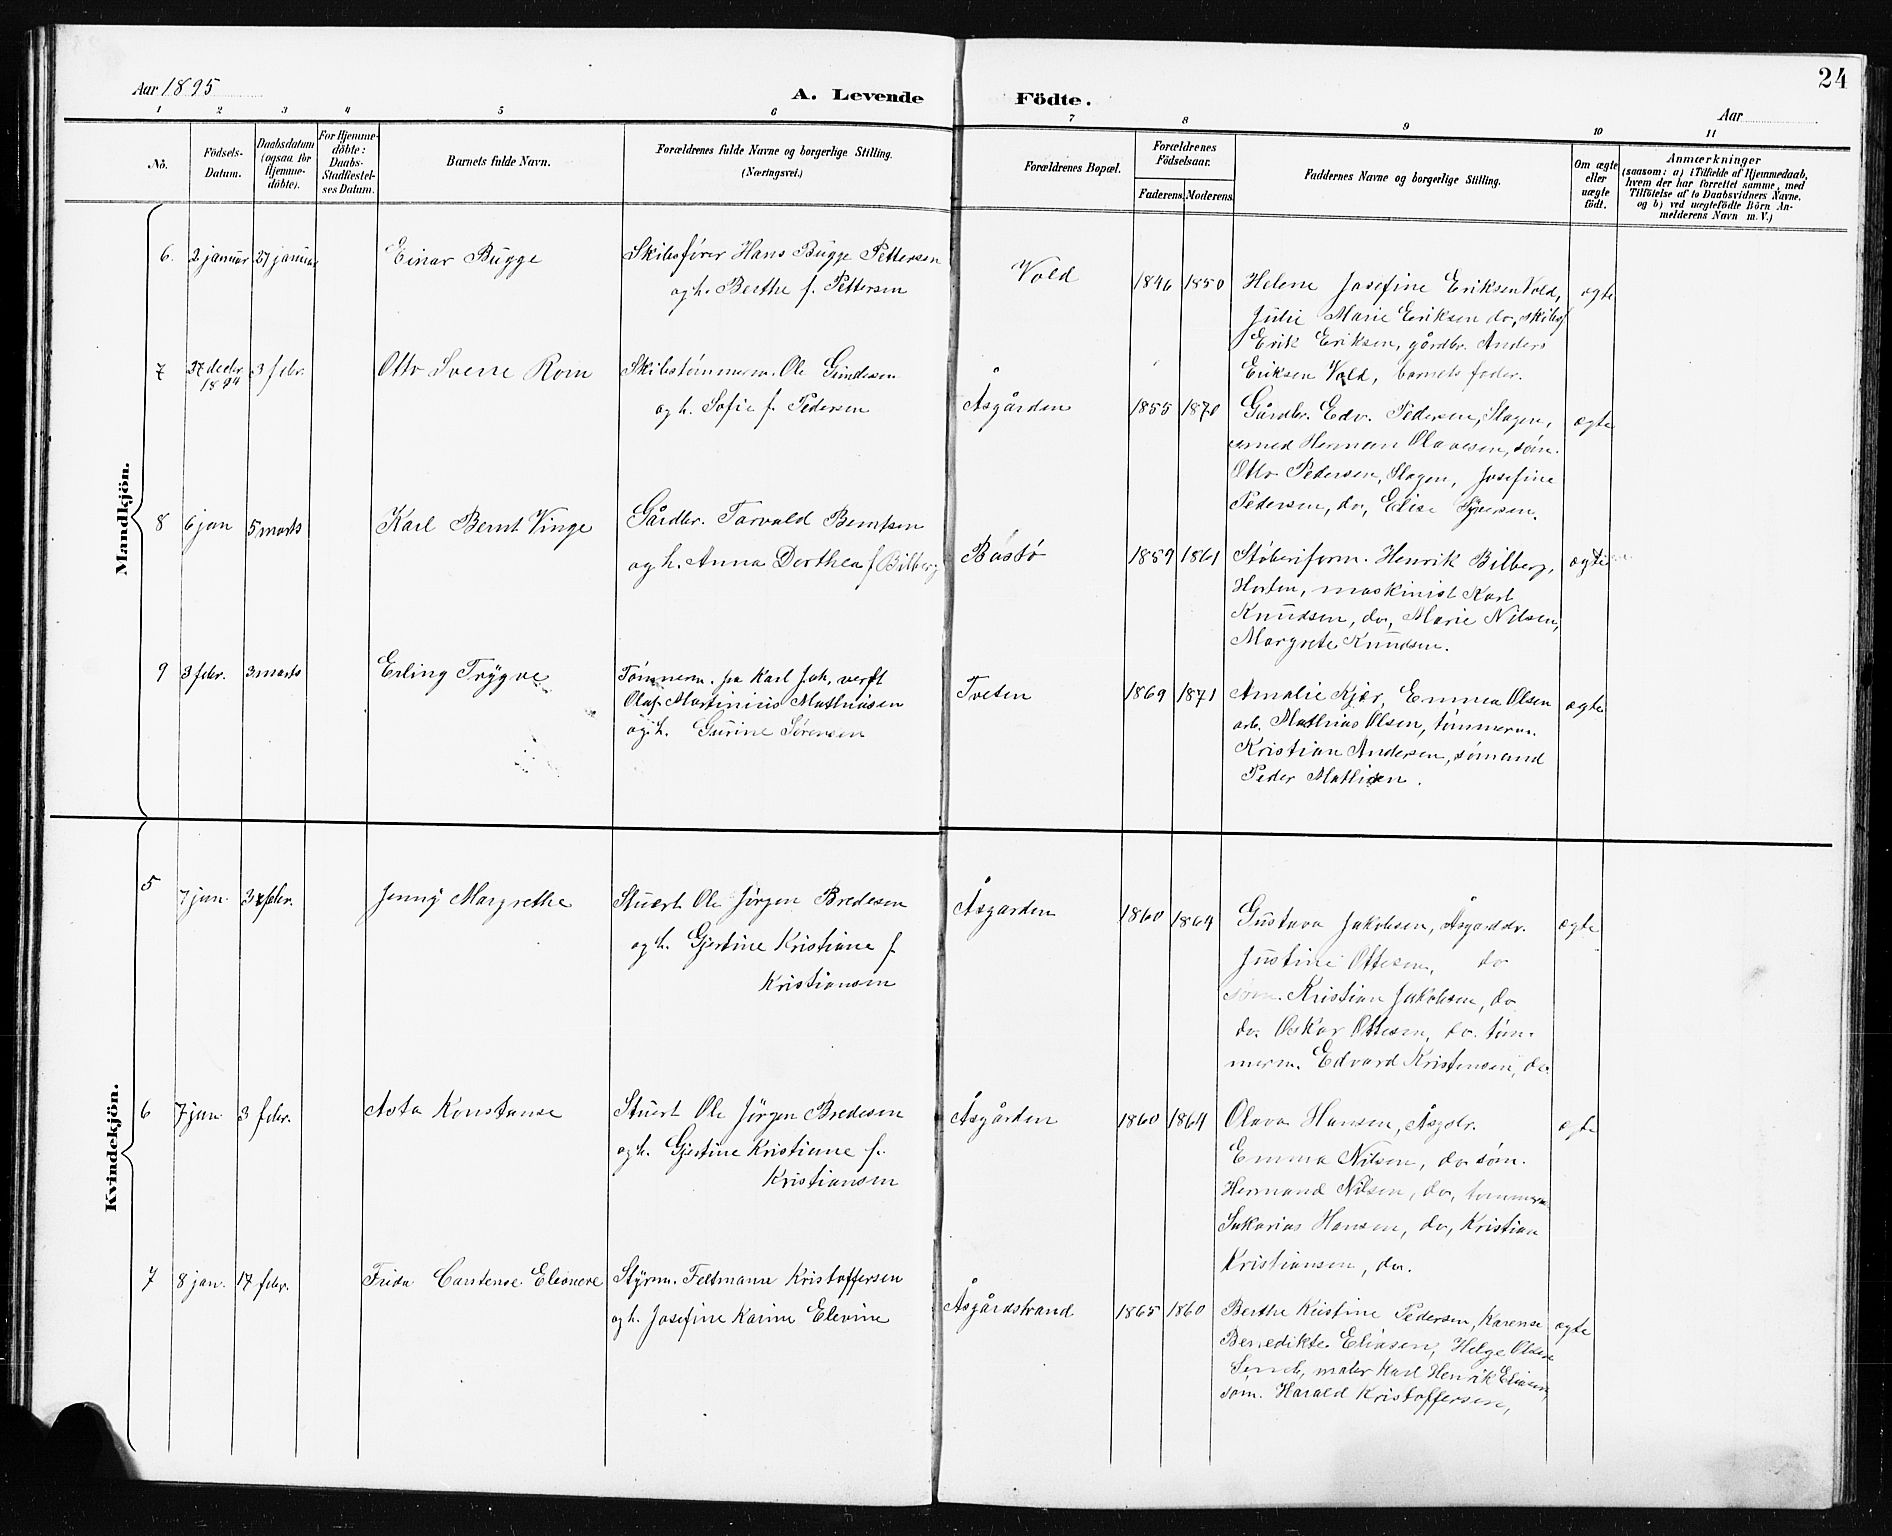 24
Aar 1895
A. Levende Födte.
Aar
1 2 3 4 5 6 7 8 9 10 11
No.
Födsels-Datum.
Daabsdatum (ogsaa for Hjemme-döbte).
For Hjemme-döbte: Daabs-Stadfæstel-ses Datum.
Barnets fulde Navn.
Forældrenes fulde Navne og borgerlige Stilling.
(Næringsvei.)
Forældrenes Bopæl.
Forældrenes Födselsaar.
Faderens. Moderens.
Faddernes Navne og borgerlige Stilling.
Om ægte eller uægte födt.
Anmærkninger
(saasom: a) i Tilfælde af Hjemmedaab,
hvem der har forrettet samme, med
Tilföielse af to Daabsvidners Navne.
og b) ved uægtefödte Börn An-
melderens Navn m. V.)
Mandkjön.
6. 2 januar 27 januar Einar Bugge
Skibsfører Hans Bugge Pettersen
og h. Berthe f. Pettersen
Vold 1846 1850
Helene Josefine Eriksen Vold,
Julie Marie Eriksen do, skibsf
Erik Eriksen, gårdbr. Anders
Eriksen Vold, barnets fader.
ægte
7 27 decbr 1894 3 febr. Otto Sverre Rom
Skibstømmerm. Ole Gundesen
og h. Sofie f. Pedersen
Åsgården 1855 1870
Gårdbr. Edv. Pedersen, Slagen,
smed Herman Olavesen, søm.
Otto Pedersen, Slagen, Josefine
Pedersen, do, Elise Syversen.
ægte
8 6 jan 5 marts Karl Bernt Vinge
Gårdbr. Torvald Berntsen
og h. Anna Dorthea f Bilberg
Bastø 1859 1861
Støberiform. Henrik Bilberg,
Horten, maskinist Karl
Knudsen, do, Marie Nilsen,
Margrete Knudsen.
ægte
9 3 febr. 3 marts Erling Trygve
Tømmerm. pa Karl Joh. verft
Olaf Martinius Mathiasen
og h. Gurine Sørensen
Tveten 1869 1871
Amalie Kjær, Emma Olsen
arb. Mathias Olsen, tømmerm.
Kristian Andersen, sømand
Peder Mathisen.
ægte
Kvindekjön.
5 7 jan. 3 febr. Jenny Margrethe
Stuert Ole Jørgen Bredesen
og h. Gjertine Kristiane f
Kristiansen
Åsgarden 1860 1864
Gustava Jakobsen, Åsgardstr.
Justine Ottesen, do
søm. Kristian Jakobsen, do
do. Oskar Ottesen, do. tøm-
merm. Edvard Kristensen, do
ægte
6 7 jan. 3 febr. Asta Konstanse
Stuert Ole Jørgen Bredesen
og h. Gjertine Kristiane f.
Kristiansen
Åsgården 1860 1864
Olava Hansen, Åsgdr.
Emma Nilsen, do søm.
Hermand Nilsen, do, tømmerm
Sakarias Hansen, do, Kristian
Kristiansen, do.
ægte
7 8 jan. 17 febr. Frida Constense Eleonore
Styrm. Feltmann Kristoffersen
og h. Josefine Karine Elevine
Åsgårdstrand 1865 1860
Berthe Kristine Pedersen, Karense
Benedikte Eliasen, Helge Olsen
maler Karl Henrik Eliasen,
søm. Harald Kristoffersen,
ægte